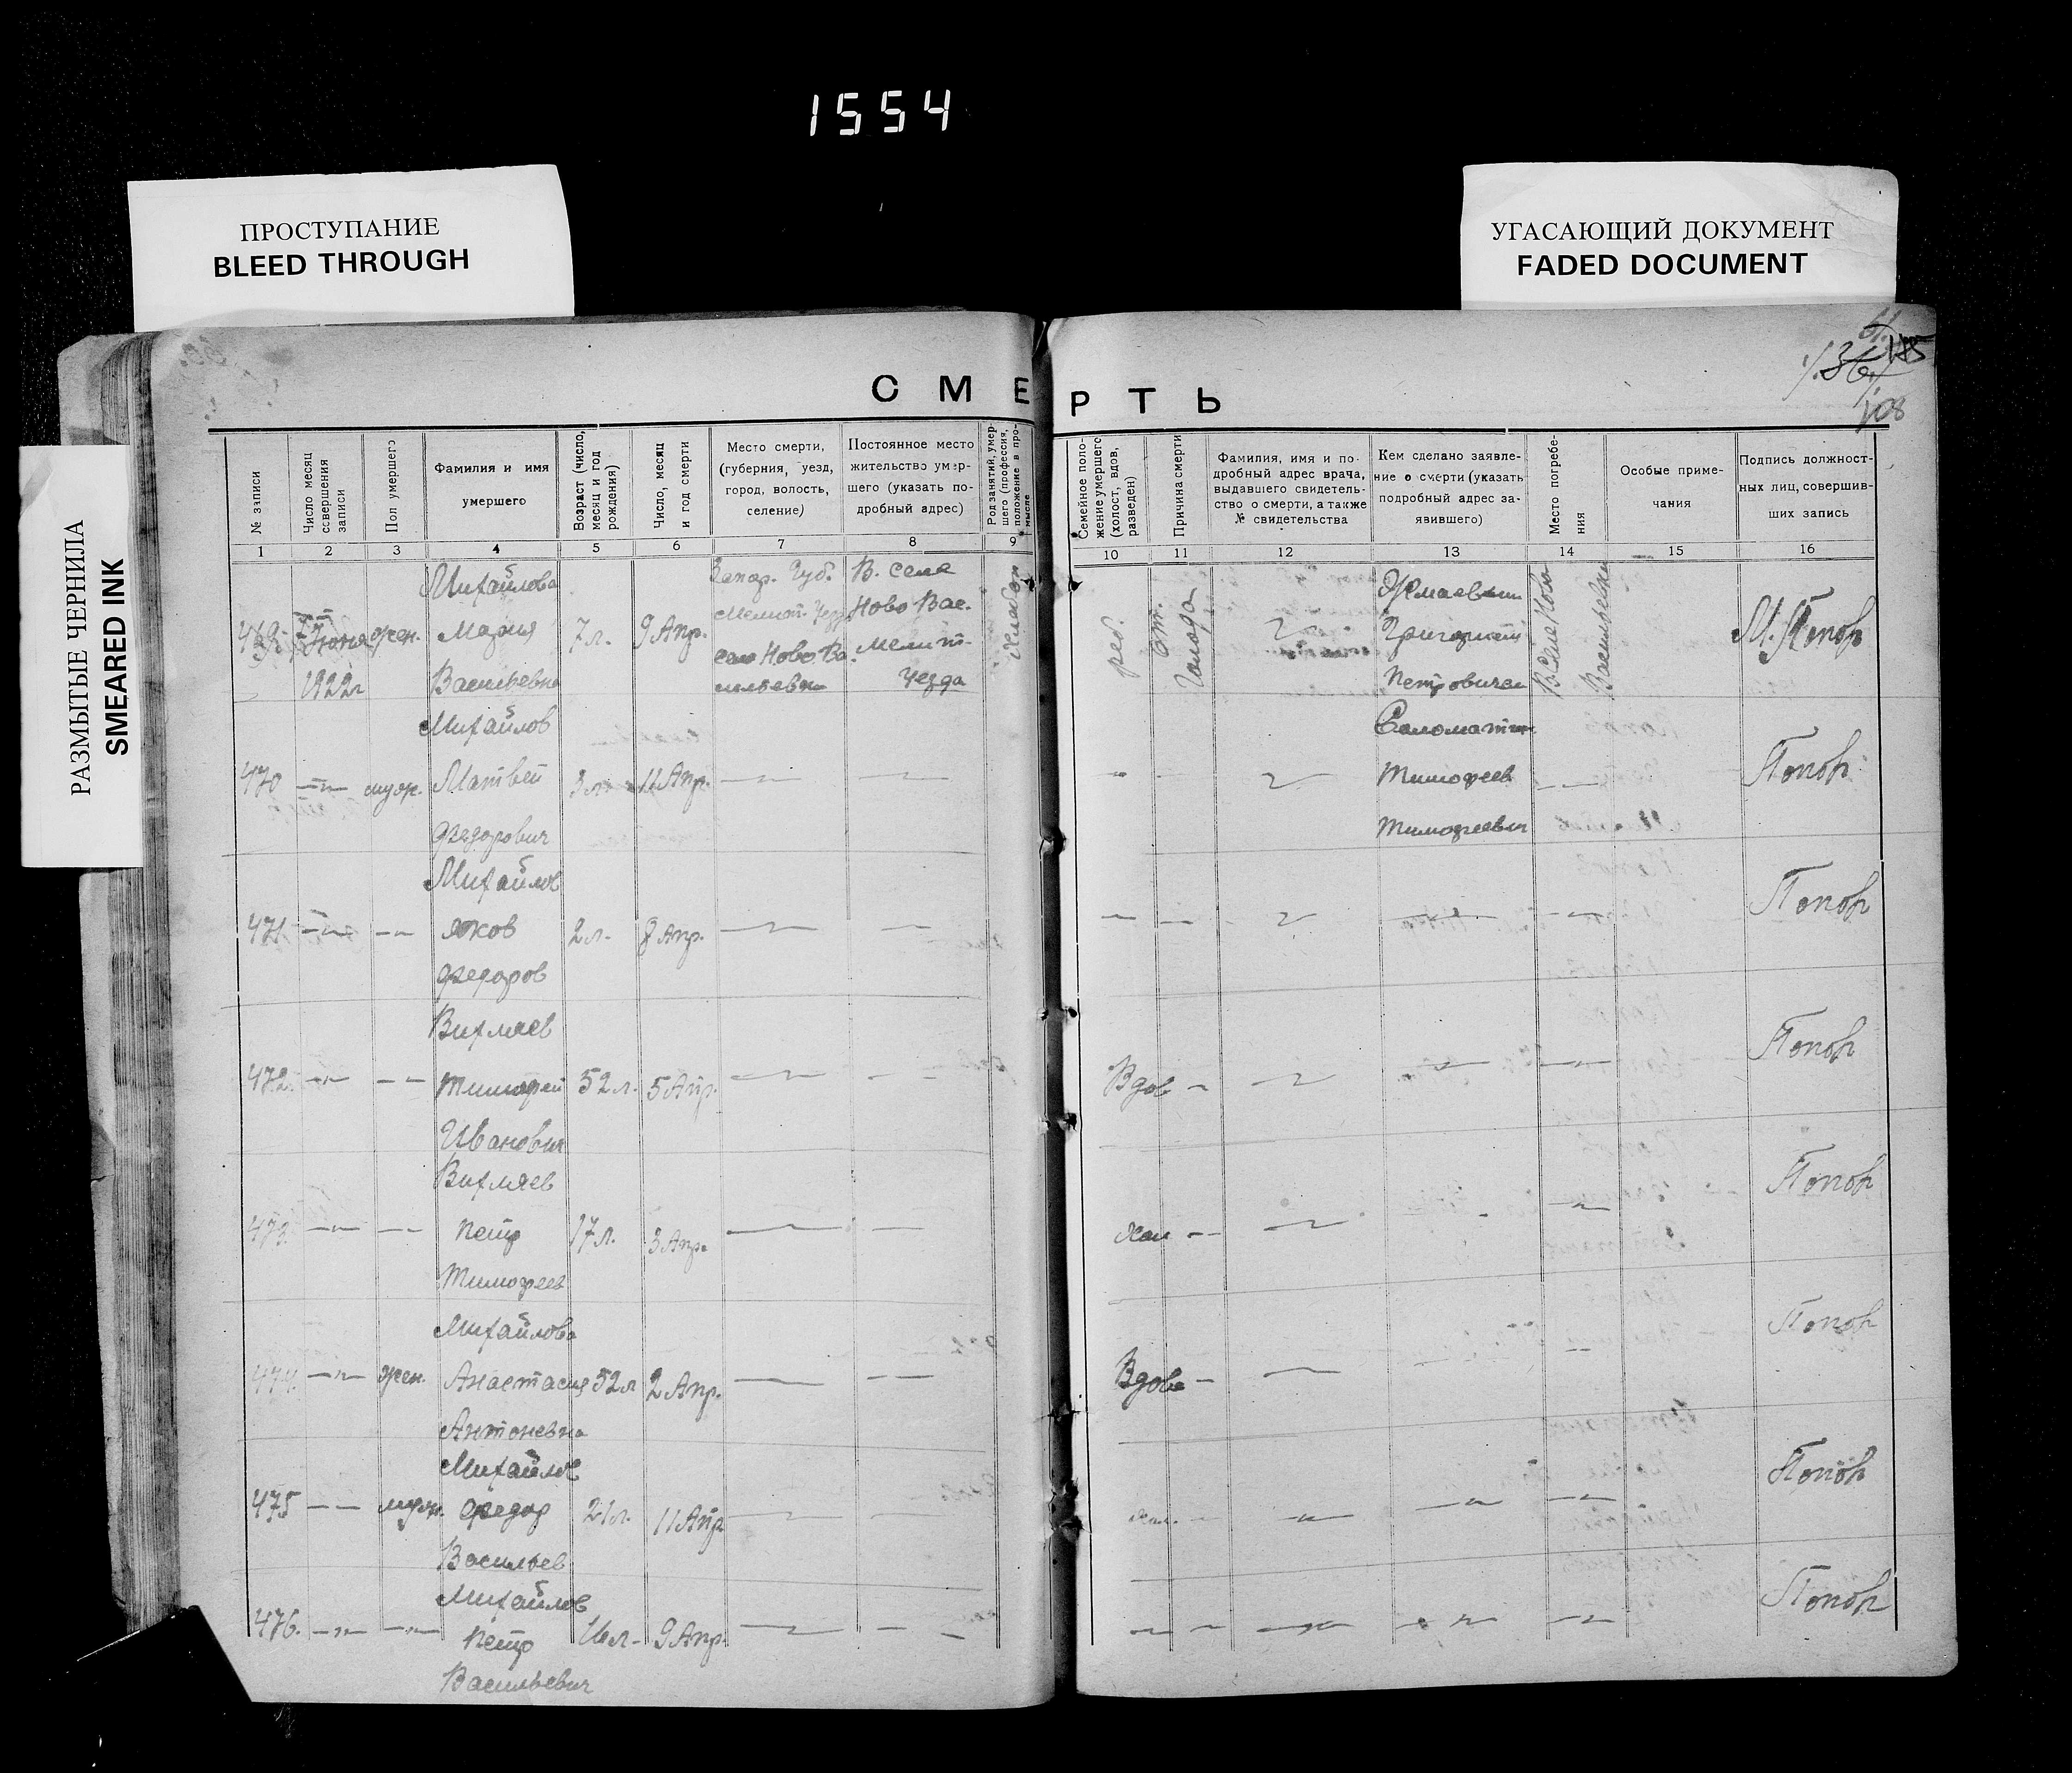 1554
ПРОСТУПАНИЕ
BLEED THROUGH
УГАСАЮЩИЙ ДОКУМЕНТ
FADED DOCUMENT
РАЗМЫТЫЕ ЧЕРНИЛА
SMEARED INK
108
СМЕРТЬ
№ записи
Число месяц совершения записи
Пол умершего
Фамилия и имя умершего
Возраст (число, месяц и год рождения)
Число, месяц и год смерти
Место смерти, (губерния, уезд, город, волость, селение)
Постоянное место жительство умершего (указать подробный адрес)
Род занятий, умершего (профессия, положение в промысле
Семейное положение умершего (холост, вдов, разведен)
Причина смерти
Фамилия, имя и подробный адрес врача, выдавшего свидетельство о смерти, а также № свидетельства
Кем сделано заявление о смерти (указать подробный адрес заявившего)
Место погребения
Особые примечания
Подпись должностных лиц, совершивших запись
1 2 3 4 5 6 7 8 9 10 11 12 13 14 15 16
469 Июня 1922г жен. Михайлова Мария Васильевна 7 л. 9 Апр. Запор. Губ. Мелит. Уезд село Ново Васильевки В. селе Ново Вас. Мелит. Уезда
реб. от. Голода Григорием Петровичем В селе Ново Васильевки М. Попов
470 муж. Михайлов Матвей Федорович 3 л. 11 Апр.
Тимофеев Тимофеевич Попов
471 Михайлов Яков Федоров 2 л. 8 Апр. Попов
472 Вихляев Тимофей Иванович 52 л. 5 Апр. Вдов Попов
473 Вихляев Петр Тимофеев 17 л. 3 Апр. Хол Попов
474 жен. Михайлова Анастасия Антоневна 52 л 2 Апр. Вдова Попов
475 муж. Михайлов Федор Васильев 21 л. 11 Апр Хол. Попов
476. Михайлов Петр Васильевич 16 л. 9 Апр. Попов